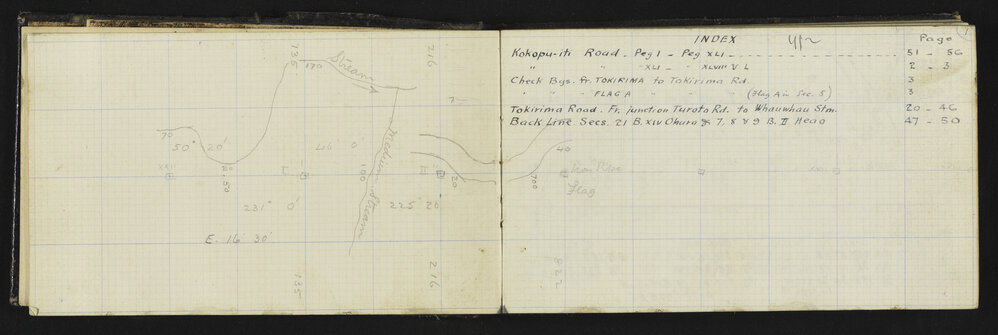 135
216
Stream
170
70
50° 20'
46° 0'
50
100
Medium Stream
30
231° 0'
225° 20'
E. 16° 30'
135
216
INDEX
Page
1
Kokopu-iti Road. Peg I - Peg XLI
51 - 56
" " XLI - " XLVIII V L
2 - 3
Check Bgs. fr. TOKIRIMA to Tokirima Rd.
3
" " " FLAG A " " " (Flag A in Sec. 5)
3
Tokirima Road. Fr. junction Turoto Rd. to Whauwhau Stm.
20 - 46
Back Line Secs. 21 B. XIV Ohura & 7, 8 & 9 B. II Heao
47 - 50
40
700
Iron Tube
Flag
822